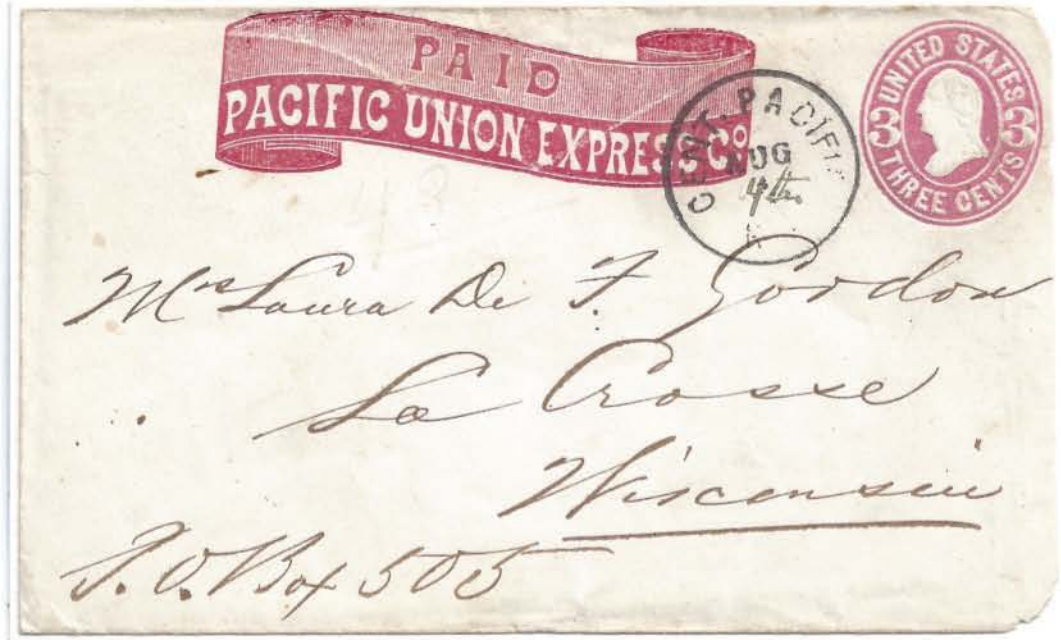 PAID
PACIFIC UNION EXPRESS Co
CENT. PACIFI
AUG
4th
UNITED STATES
3 3
THREE CENTS
Mrs Laura De F. Gordon
La Crosse
Wisconsin
P.O. Box 505